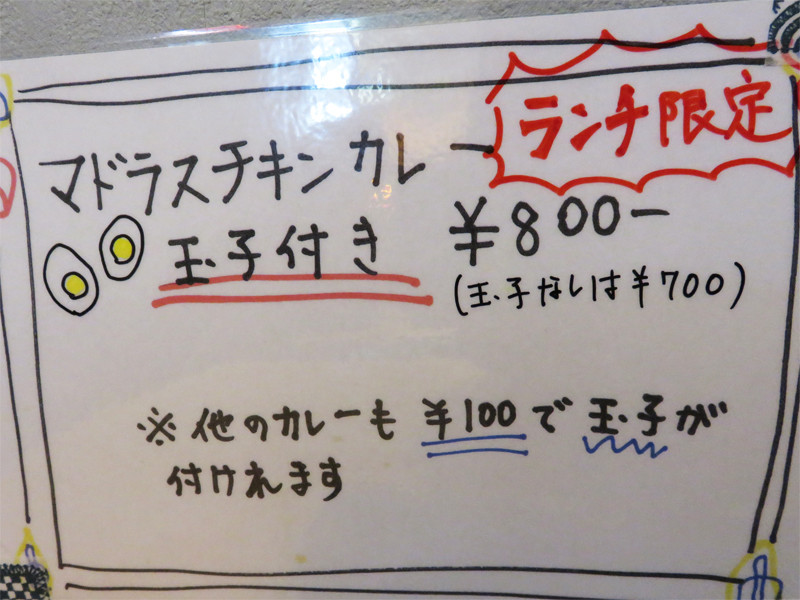 ランチ限定
マドラスチキンカレー
玉子付き ¥800-
(玉子なしは¥700)
※他のカレーも ¥100で玉子が
付けれます